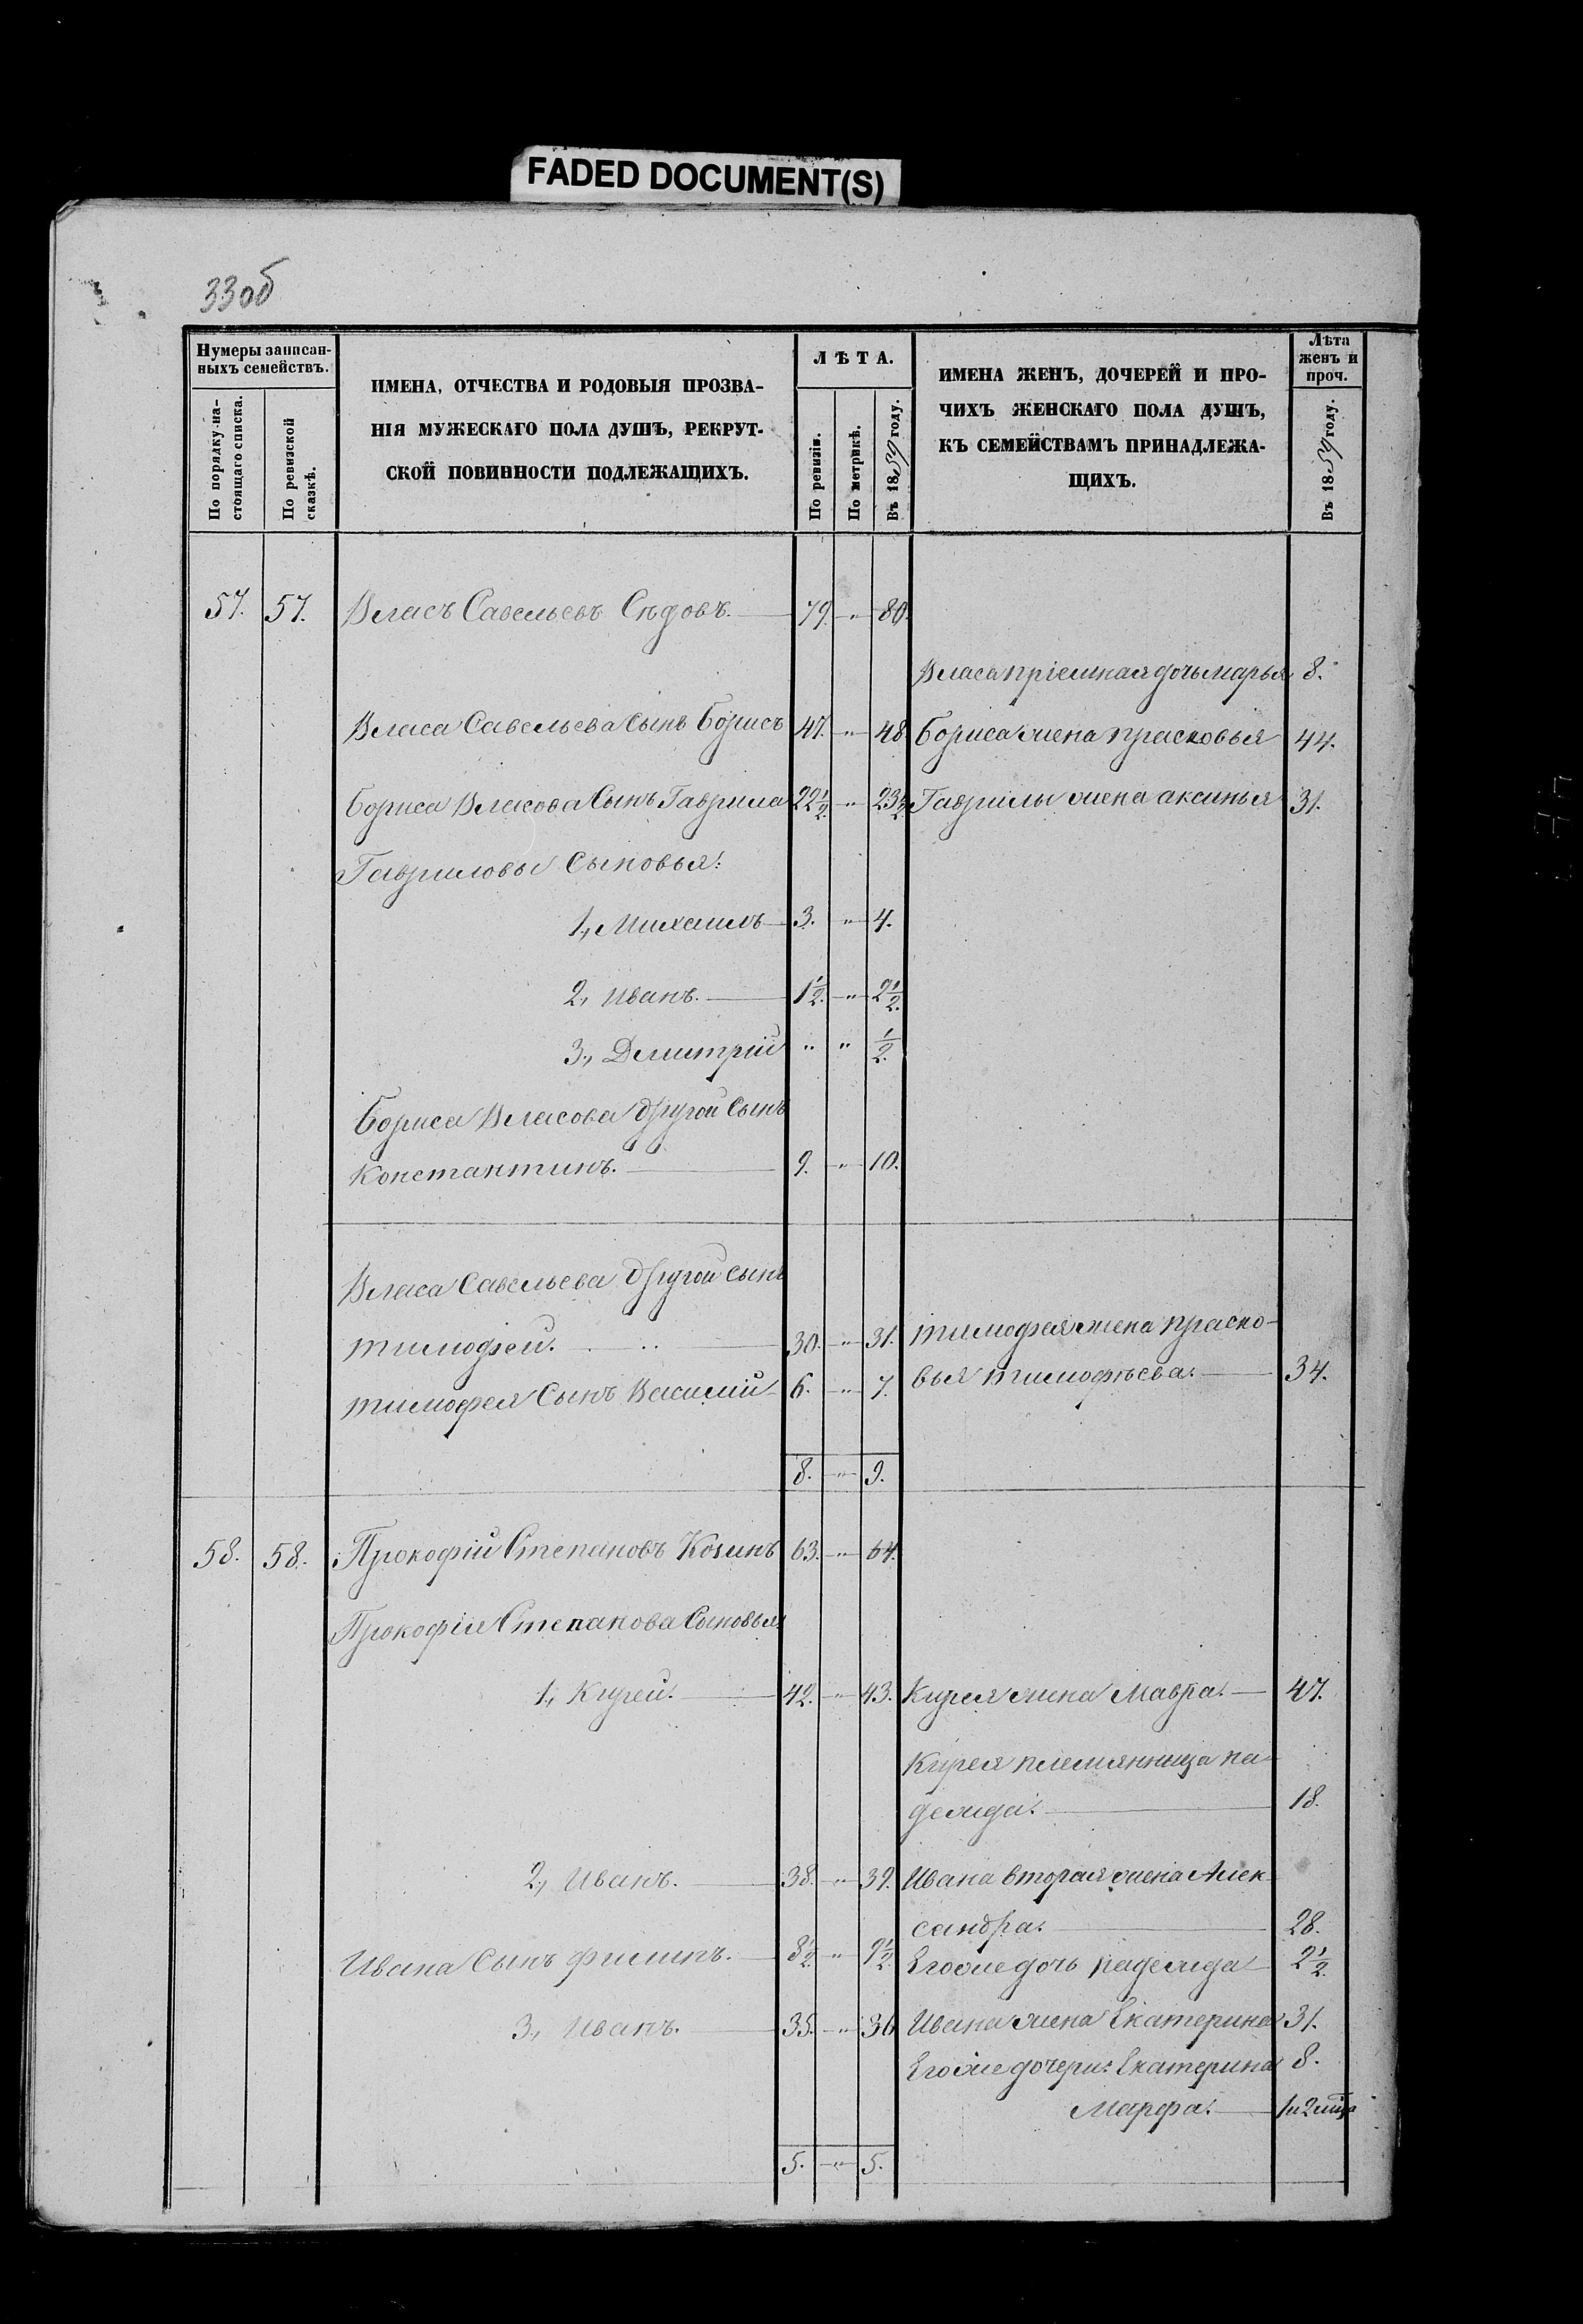 FADED DOCUMENT(S)
33об
Нумеры записан-
ныхъ семействъ.
По порядку на-
стоящаго списка.
По ревизской
сказкѣ.
ИМЕНА, ОТЧЕСТВА И РОДОВЫЯ ПРОЗВА-
НІЯ МУЖЕСКАГО ПОЛА ДУШЪ, РЕКРУТ-
СКОЙ ПОВИННОСТИ ПОДЛЕЖАЩИХЪ.
ЛѢТА.
По ревизіи.
По метрикѣ.
Въ 1859 году.
ИМЕНА ЖЕНЪ, ДОЧЕРЕЙ И ПРО-
ЧИХЪ ЖЕНСКАГО ПОЛА ДУШЪ,
КЪ СЕМЕЙСТВАМЪ ПРИНАДЛЕЖА-
ЩИХЪ.
Лѣта
женъ и
проч.
Въ 1859 году.
57. 57. Власъ Савельевъ Сѣдовъ. 79. " 80.
Власа пріемная дочь марья 8.
Власа Савельева Сынъ Борисъ 47. " 48. Бориса жена прасковья 44.
Бориса Власова Сынъ Гаврила 22½. " 23½. Гаврилы жена аксинья 31.
Гавриловы Сыновья:
1, Михаилъ 3. " 4.
2, Иванъ. 1½. " 2½.
3, Дмитрій " " ½.
Бориса Власова другой Сынъ
Константинъ. 9. " 10.
Власа Савельева другой сынъ
тимофей. 30. " 31. тимофея жена праско-
вья тимофѣева. 34.
тимофея Сынъ Василій 6. " 7.
8. " 9.
58. 58. Прокофій Степановъ Козинъ 63. " 64.
Прокофія Степанова Сыновья:
1, Кирей. 42. " 43. Кирея жена Мавра. 47.
Кирея племянница на-
дежда. 18.
2, Иванъ. 38. " 39. Ивана вторая жена Алек-
сандра. 28.
Ивана Сынъ филипъ. 8½. " 9½. Егоже дочь надежда 2½.
3, Иванъ. 35. " 36 Ивана жена Екатерина 31.
Егоже дочери: Екатерина 8.
Марфа. 1 и 2 мца
5. " 5.